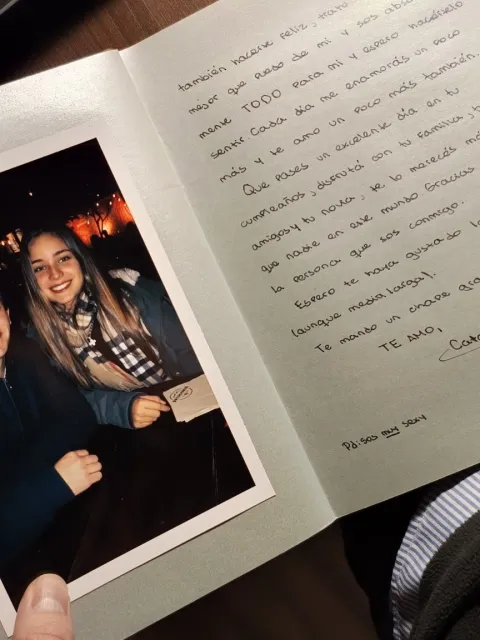 también hacerte feliz, trato
mejor que puedo de mi y sos abso
mente TODO para mi y espero hacértelo
sentir. Cada día me enamorás un poco
más y te amo un poco más también.
Que pases un excelente día en tu
cumpleaños, disfrutá con tu familia, t
amigos y tu novia, te lo merecés más
que nadie en este mundo. Gracias
la persona que sos conmigo.
Espero te haya gustado la
(aunque media larga).
Te mando un chape gra
TE AMO,
Cata
Pd: sos muy sexy